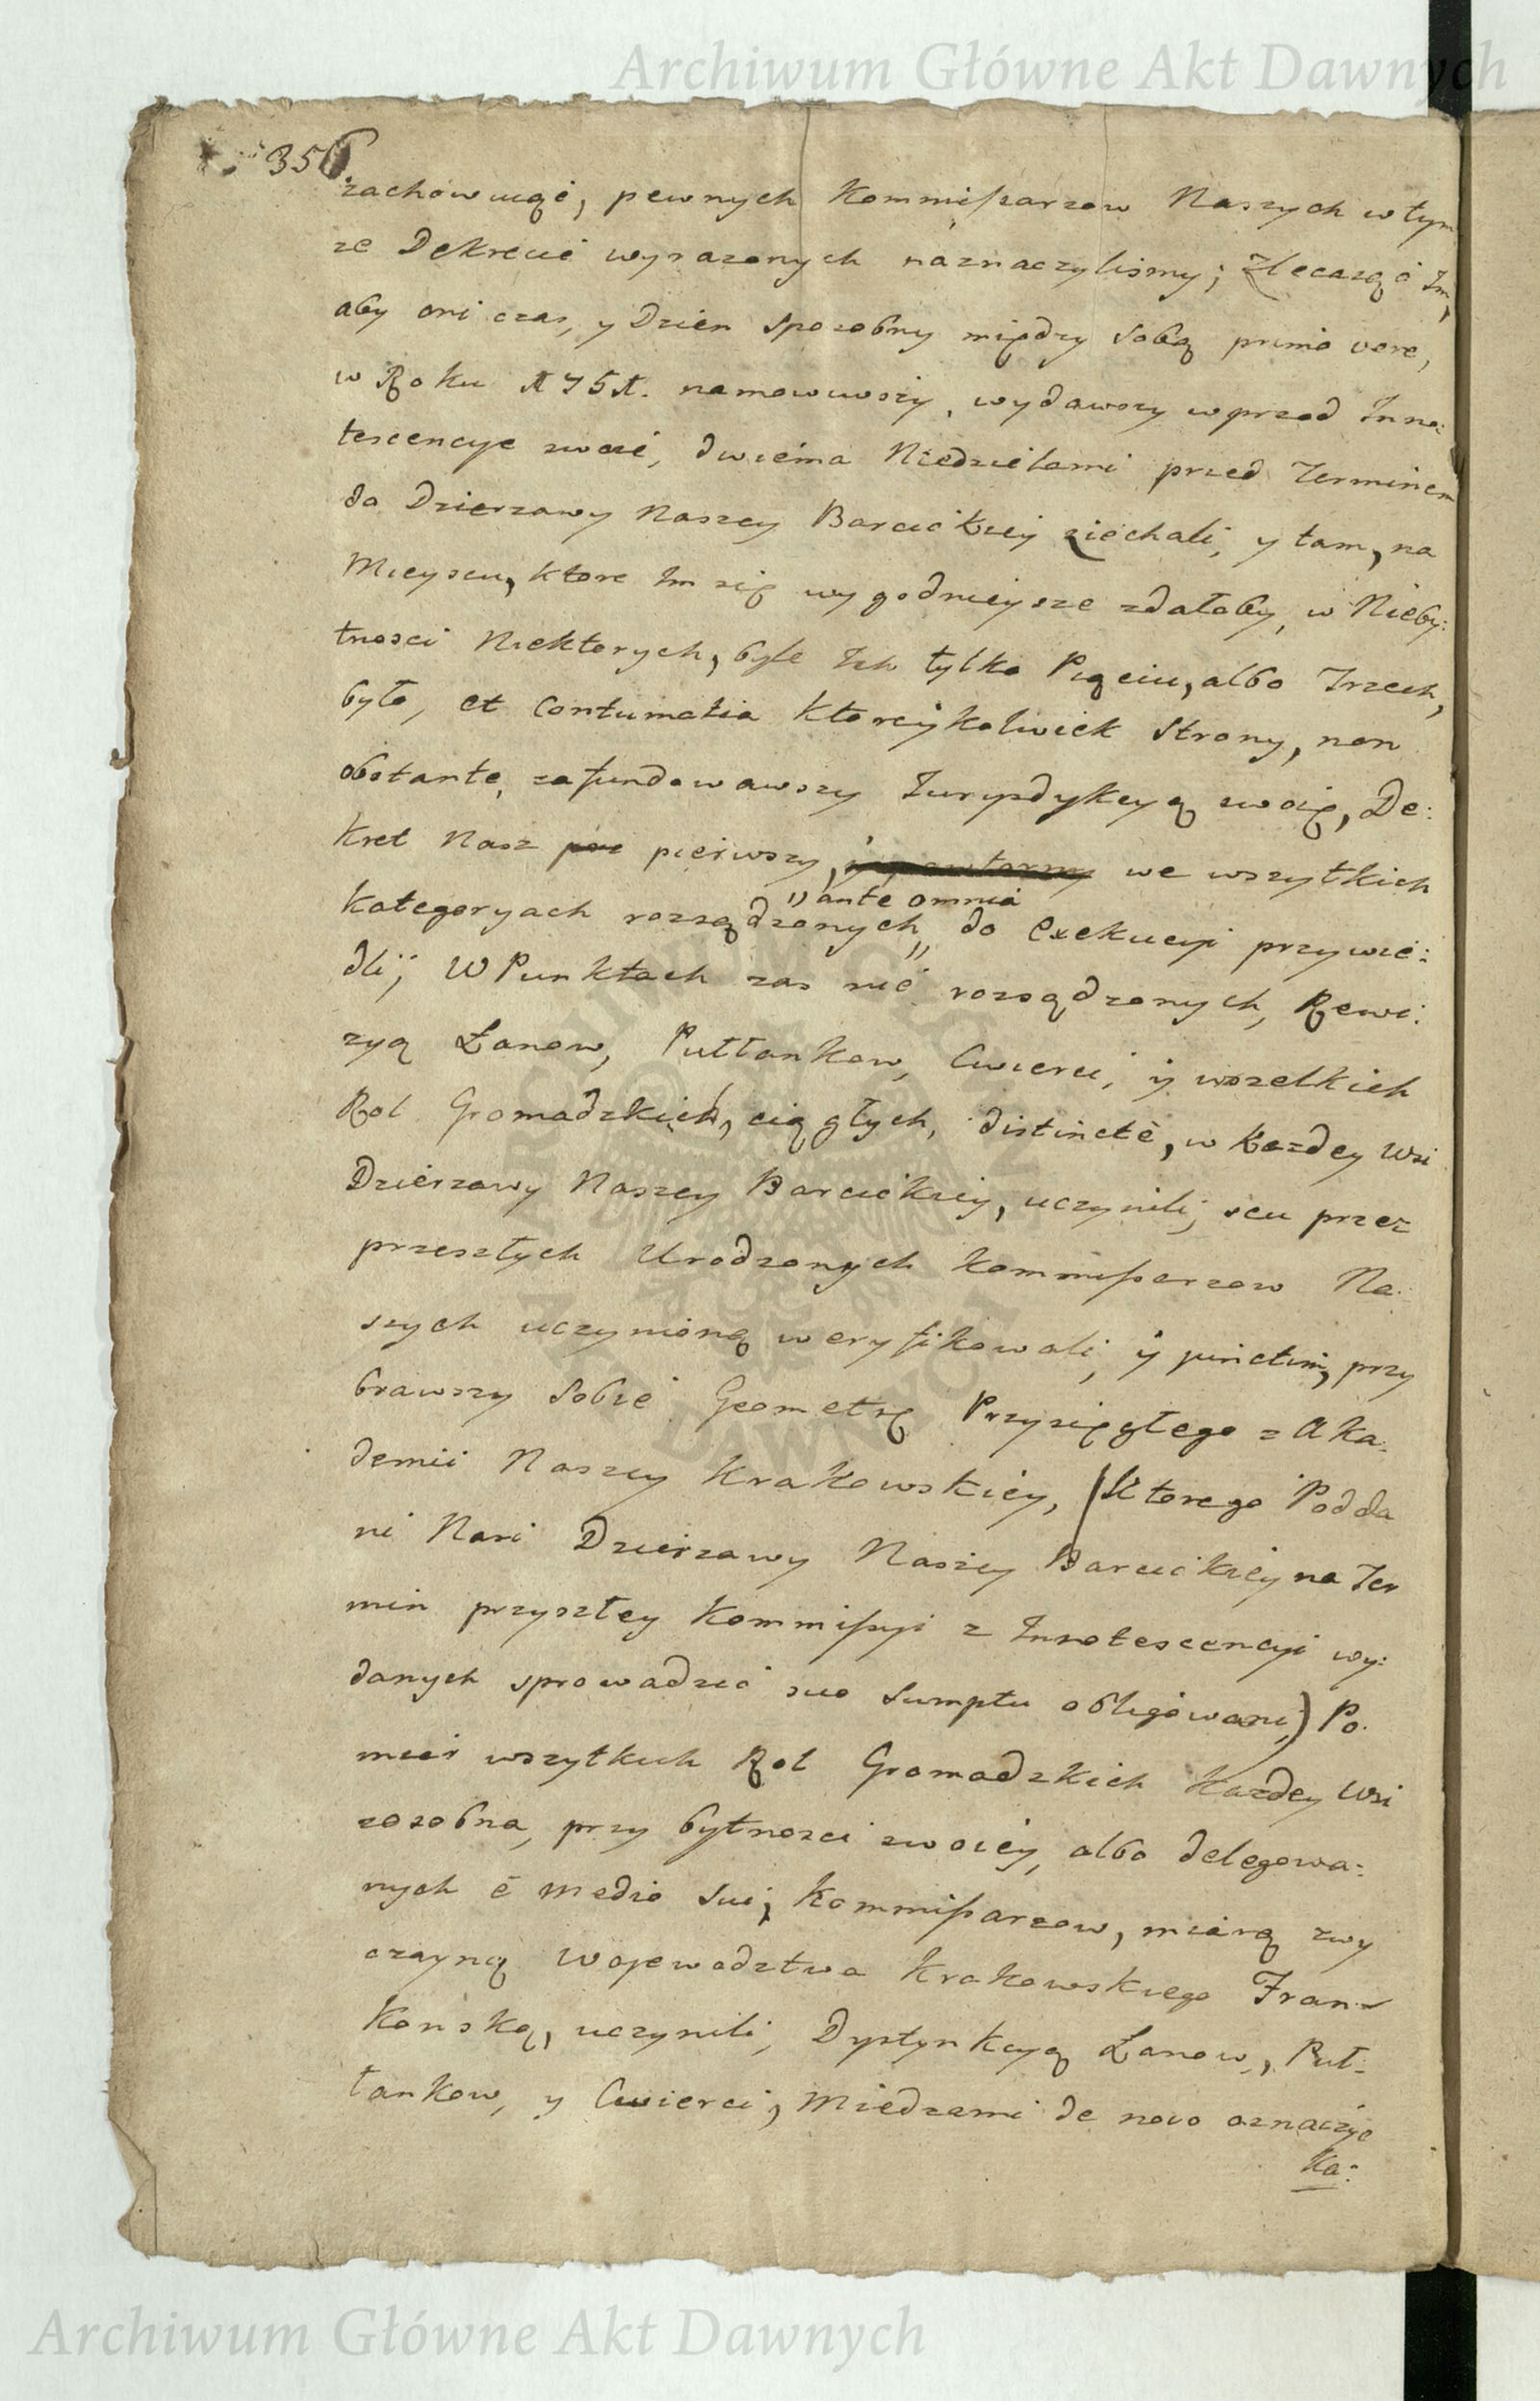 Archiwum Główne Akt Dawnych
356
zachowując, pewnych Kommissarzow Naszych w tym
ze Dekrecie wyrazonych náznaczylismy; zlecaiąc Im,
aby oni czas, y Dzien sposobny między sobą primo vere,
w Roku 1751. namowiwszy, wydawszy wprzod Inno:
tescencye swoie, dwiema Niedzielami przed Terminem
do Dzierzawy Naszey Barcickiey ziechali, y tam, na
Mieyscu, ktore Im się wygodnieysze zdałoby, w Nieby:
tnosci Niektorych, byle Ich tylko Pięciu, albo Trzech,
było, et Contumatia ktoreykolwiek Strony, non
obstante, zafundowawszy Jurysdykcyą swoię, De:
kret Nasz pierwszy, we wszytkich
„ante omnia
kategoryach rozsądzonych „ do Exekucyi przywie:
dli; W Punktach zas nie rozsądzonych, Rewi:
zyą Łanow, Pułłankow, Cwierci, y wszelkich
Rol Gromadzkich, ciągłych, distincte, w kazdey Wsi
Dzierzawy Naszey Barcickiey, uczynili; seu przez
przeszłych Urodzonych Kommissarzow Na:
szych uczynioną weryfikowali, y junctim, przy
brawszy sobie Geometrę Przysięgłego z Aka:
demii Naszey Krakowskiey, (ktorego Podda
ni Nasi Dzierzawy Naszey Barcickiey na Ter
min przyszłey Kommissyi z Innotescencyi wy:
danych sprowadzić suo Sumptu obligowani,) Po:
miar wszytkich Rol Gromadzkich kazdey Wsi
zosobna, przy bytnosci swoiey, albo delegowa:
nych é medio Sui, Kommissarzow, miarą zwy
czayną Wojewodztwa Krakowskiego Fran-
końską, uczynili, Dystynkcyą Łanow, Puł:
łankow, y Cwierci, Miedzami de novo oznaczyc
Ka:
Archiwum Główne Akt Dawnych